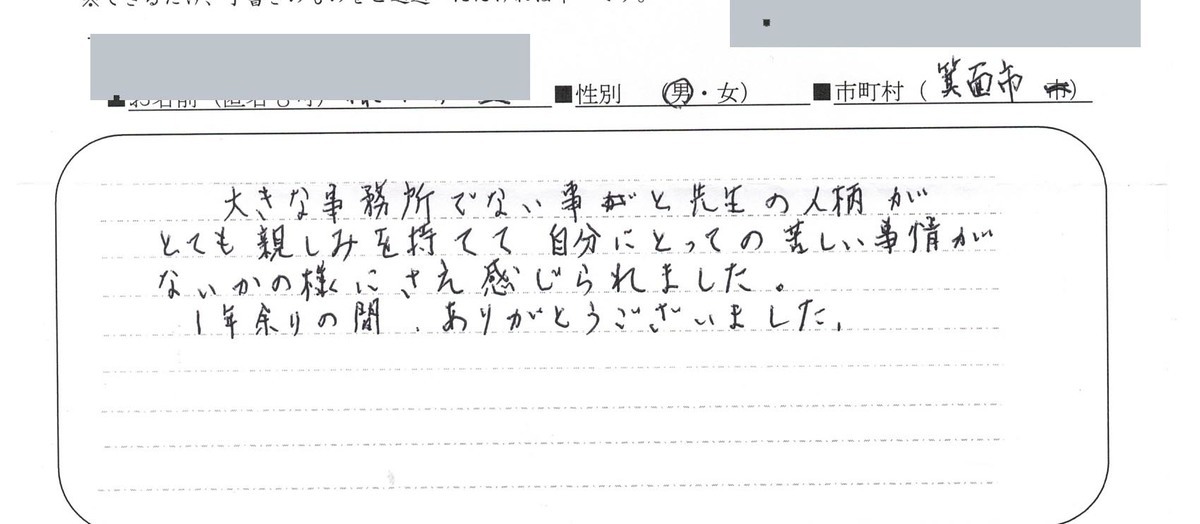 ■性別 （男・女） ■市町村（ 箕面市 ）
大きな事務所でない事と先生の人柄が
とても親しみを持てて 自分にとっての苦しい事情が
ないかの様にさえ感じられました。
1年余りの間、ありがとうございました。